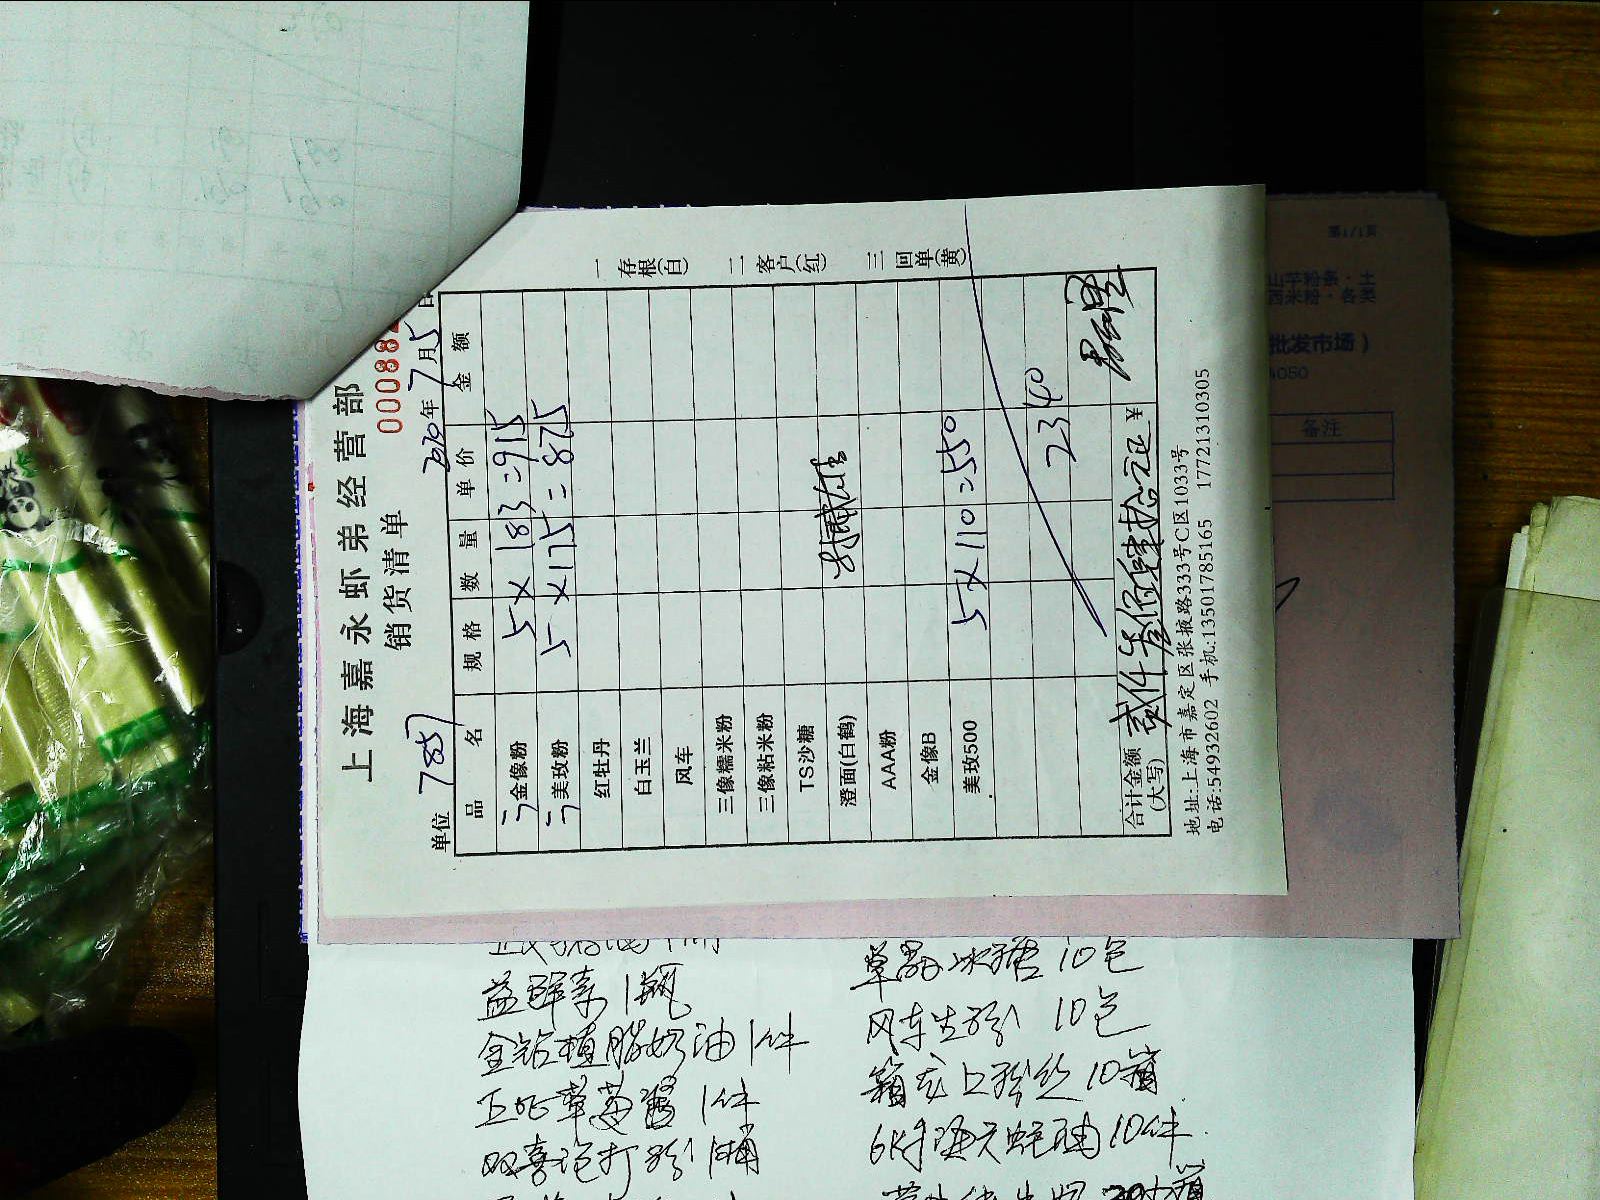 上海嘉永虾弟经营部
销货清单
000088
单位 785 2020年7月5日
品名 规格 数量 单价 金额
金像粉 5×183=915
美玫粉 5×175=875
红牡丹
白玉兰
风车
三像糯米粉
三像粘米粉
TS沙糖
澄面(白鹤)
AAA粉
金像B
美玫500 5×110=550
2340
合计金额(大写) 贰仟叁佰肆拾元正 ¥
地址:上海市嘉定区张掖路333号C区1033号
电话:54932602 手机:13501785165 17721310305
一存根(白) 二客户(红) 三回单(黄)
山芋粉条·土
西米粉·各类
批发市场)
备注
益鲜素1瓶
金钻植脂奶油1件
草莓酱1件
双喜泡打粉1桶
单晶冰糖10包
风车生粉10包
箱龙上粉丝10箱
6K手海天蚝油10件